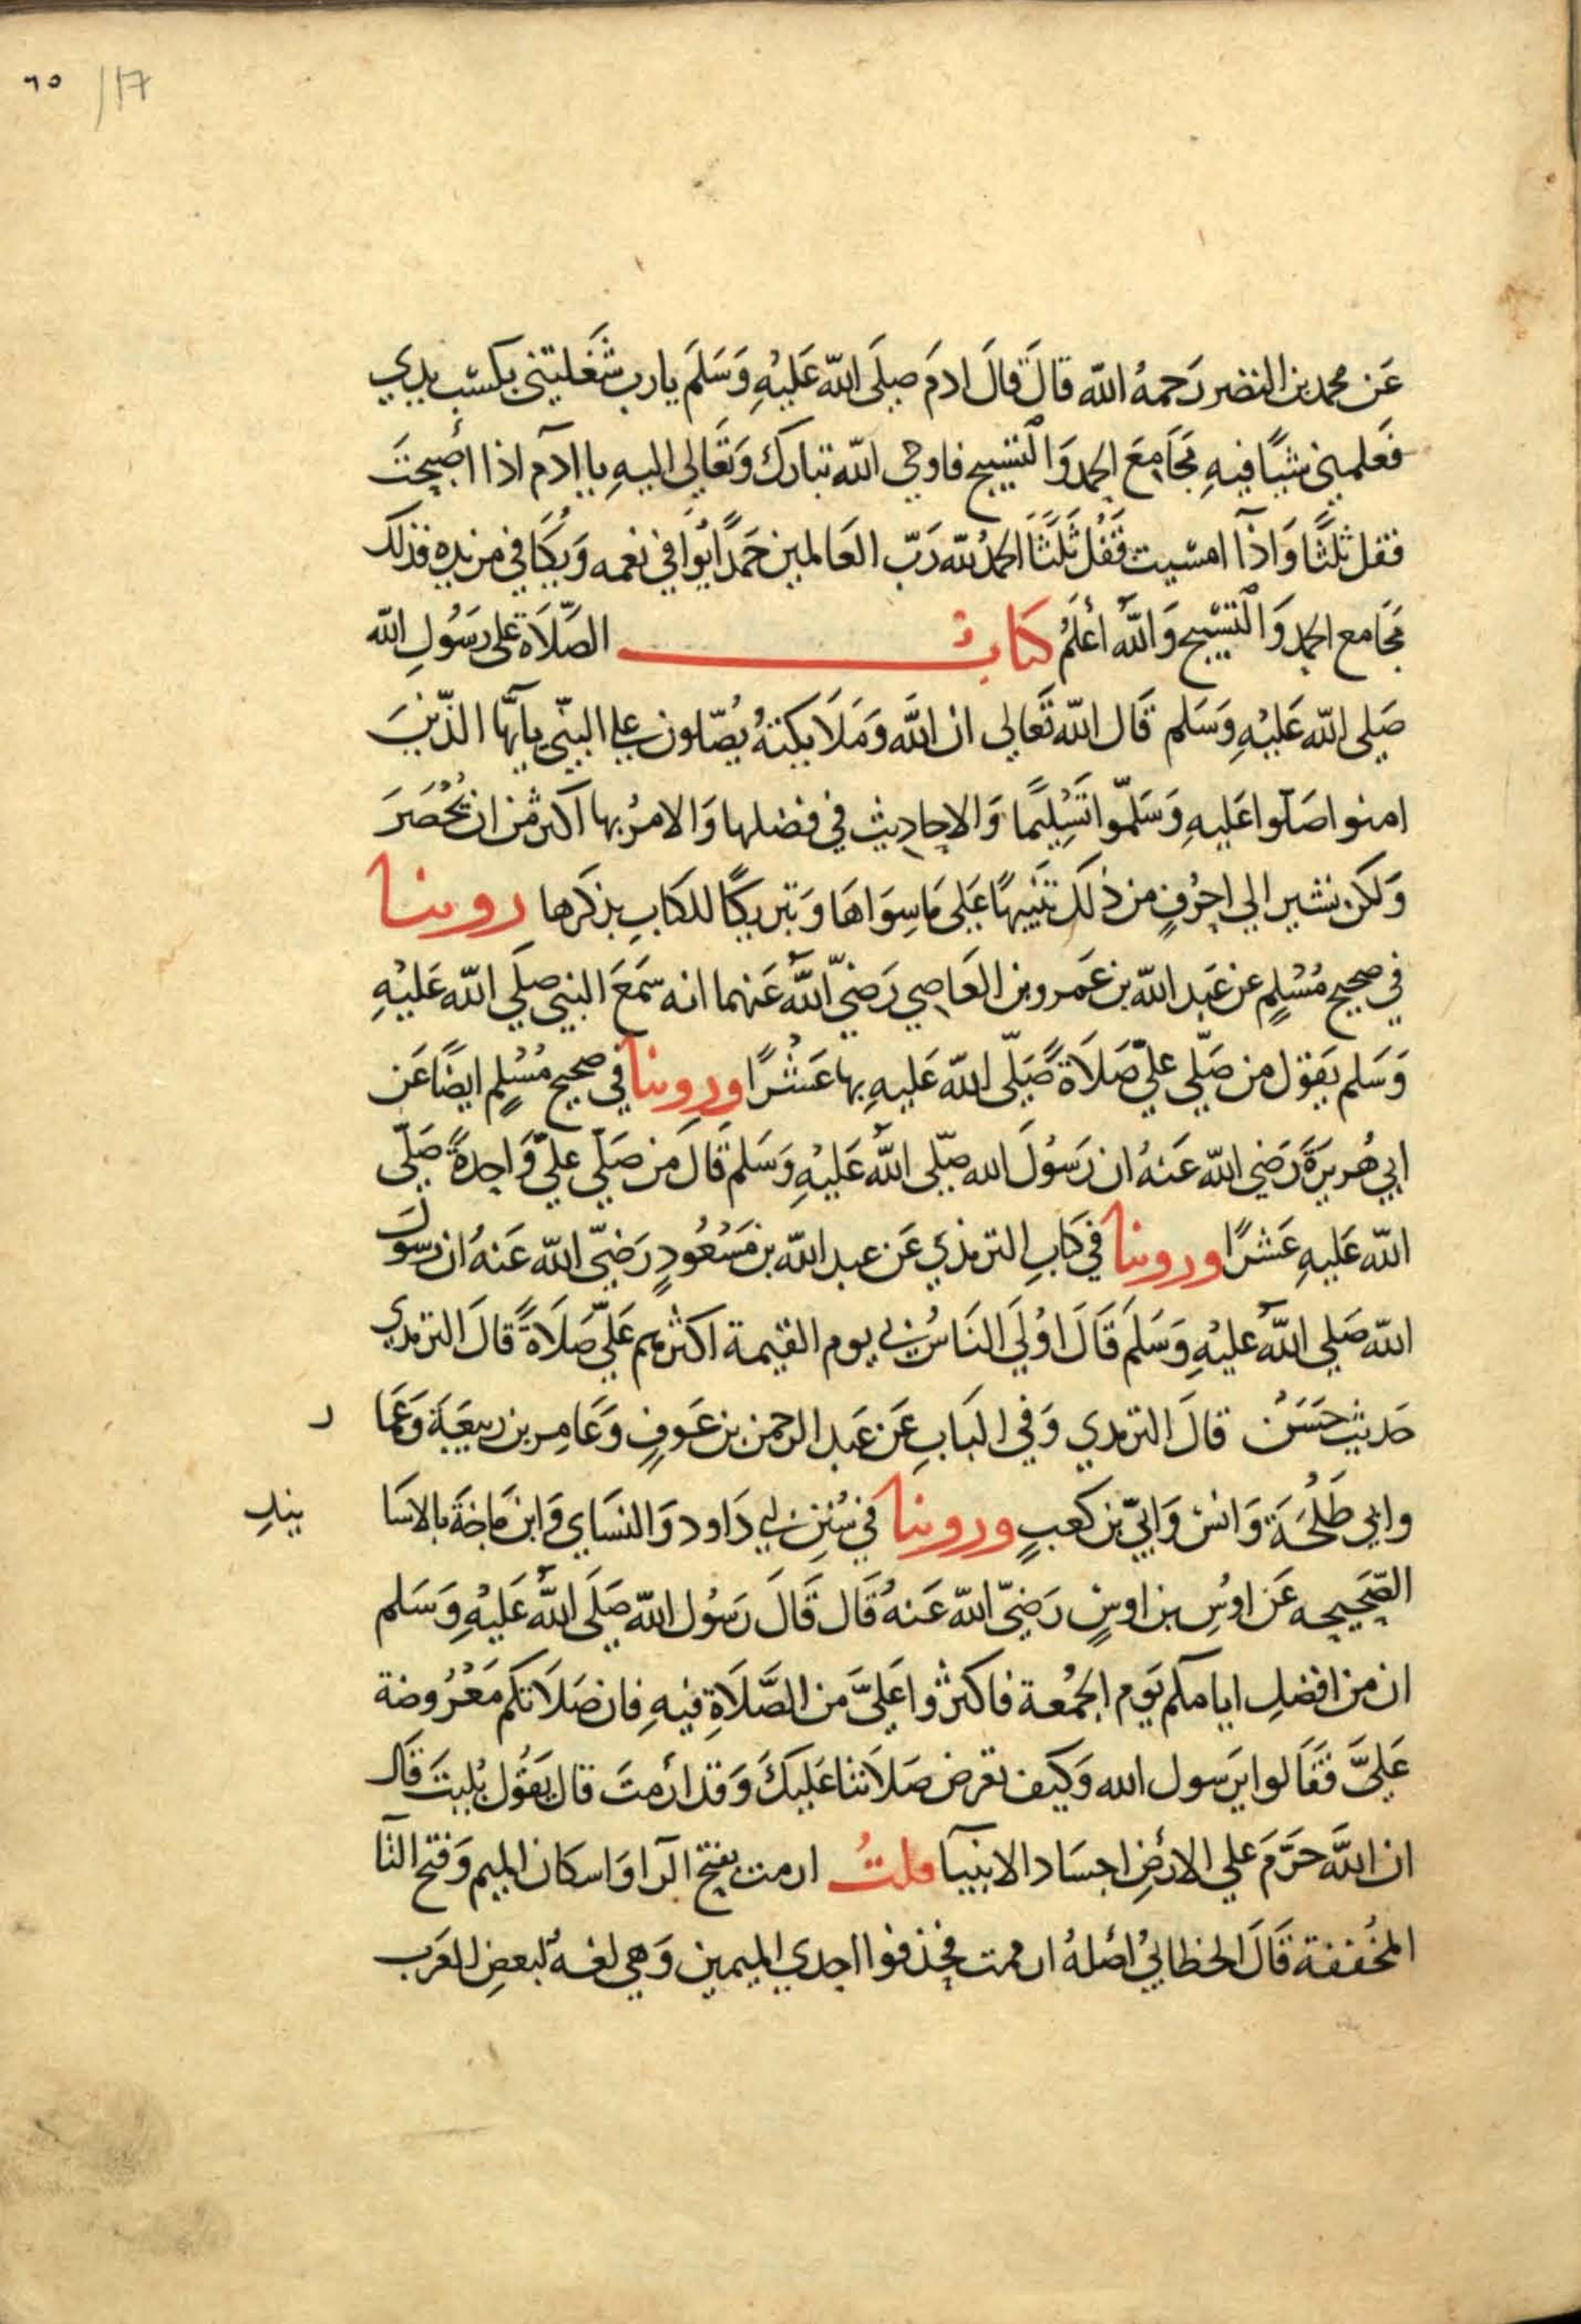 ٦٥ /17
عَن محمد بن النضر رَحمهُ الله قالَ قالَ ادمَ صلَى الله عَليْهِ وَسَلمَ يارب شَغَليتنى بكسْب يدي
فعلمينى شيًا فيهِ مَجَامِعَ الحمد وَالْتسْبيح فاوحى الله تبارك وَتعَالى اليهِ يا ادَم اذا أصبحتَ
فقل ثلثًا وَاذآ امسَيت فقُل ثَلَثًا الحمدُ لله رَبّ العَالمين حَمدًا يُوافي نعمه وَيُكَافى مزيده فذلك
مَجَامع الحمد وَالْتسْبيح وَاللّٰهُ أعْلَمُ كتابُ الصَّلَاة على رسُولِ الله
صَلى الله عَليْهِ وَسَلم قَال الله تَعَالى ان اللّٰه وَمَلَايكتهُ يُصَّلون على النبيّ يايَّها الذّينَ
امنوا صَلّوا عَليهِ وَسَلمّوا تَسْلِيمًا وَالاحاديث في فضلها وَالامرُ بها اكثر مِن ان تُحْصَرَ
وَلكن نشير الى احرُفٍ من ذلَك تَنْبيهًا عَلى مَا سِوَاهَا وَتبريكًا للكَابِ بذكرها روينا
في صحيح مُسْلِمٍ عن عَبد الله بن عَمرو بن العَاصي رَضيَ اللّٰه عَنهما انه سَمَعَ النبي صلَى الله عَليْهِ
وَسَلم يَقول من صَلّى علىّ صَلَاةً صَلّى الله عَليهِ بها عَشْرًا وروينا في صحيح مُسْلِم ايضًا عَن
ابي هُريرَةَ رَضي الله عَنهُ ان رَسُولَ الله صلّى اللّٰه عَليْهِ وَسَلم قَالَ مَن صَلّى علىّ وَاحِدةً صَلّى
الله عَليهِ عَشرًا وروينا في كَابِ الترمذي عَن عبد الله بن مَسْعُودٍ رَضيّ الله عَنهُ ان رسولَ
الله صَلى اللّٰه عليْهِ وَسَلَم قَالَ اوُلَى النَاسُ بي يوم القيمة اكثرهم عَليّ صَلَاةً قالَ الترمدي
حَديث حَسَنٌ قالَ الترمدي وَفي البَابِ عَن عَبد الرحمن بن عَوفٍ وَعَامِر بن ربيعَةَ وَعَمَا ر
وابي طَلْحَةَ وَانس وَابيّ بن كعبٍ وروينا في سُنَنِ ابي دَاود وَالنسَاي وَابن مَاجَة بالاسَا نيدِ
الصَّحيحِه عَن اوُسِ بن اوسٍ رَضيّ الله عَنهُ قَال قَالَ رَسُول الله صَلَى اللّٰه عَليْهِ وَسَلم
ان من افضلِ ايامكم يَوم الجمُعة فاكثروا عَليَّ من الصَّلَاةِ فيهِ فان صَلَاتكم مَعْرُوضة
عَليَّ فقَالوا يرَسول الله وَكيف تعرض صَلَاتنا عَليكَ وَقد ارُمتَ قال يَقُول بُليتَ قَال
ان اللّٰهَ حَرَّمَ على الارْضِ اجسَاد الانبيآ قلتُ ارمت بفتح الرا وَاسكان الميم وَفتح التآ
المخُففة قَالَ الخطابيُ اصْلهُ ارممت فحذفوا احدي الميمين وَهي لغهٌ لبعضِ العَرب